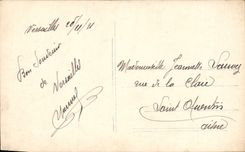 Versailles
Bon Souvenir
de
Versailles
Mademoiselle Jeannette
rue de la Claie
Saint Quentin
Aisne